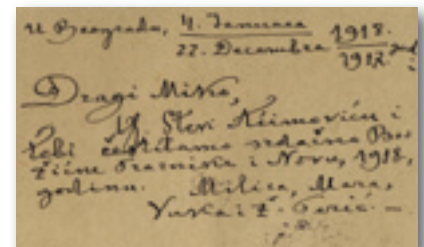 U Beogradu, 4. Januara 1918.
22. Decembra 1917. god.
Dragi Mirko,
Steri Aćimoviću i
tebi čestitamo srdačno Bo-
žićne Praznike i Novu, 1918,
godinu. Milica, Mara,
Vuka i Ž. Perić. —